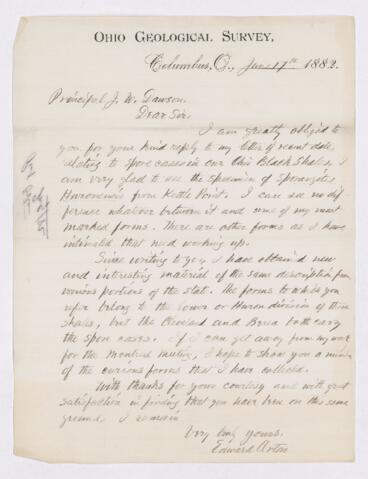 OHIO GEOLOGICAL SURVEY,
Columbus, O., June 17th 1882.
Principal J. W. Dawson,
Dear Sir,
I am greatly obliged to
you for your kind reply to my letter of recent date,
relating to spore cases in our Ohio Black Shales. I
am very glad to see the specimen of Sporangites
Huronensis from Kettle Point. I can see no dif-
ference whatever between it and one of my most
marked forms. There are other forms as I have
intimated that need working up.
Since writing to you, I have obtained new
and interesting material of the same description from
various portions of the state. The forms to which you
refer belong to the lower or Huron division of these
shales, but the Cleveland and Berea both carry
the spore cases. If I can get away from my work
for the Montreal meeting, I hope to show you a number
of the curious forms that I have collected.
With thanks for your courtesy and with great
satisfaction in finding that you have been on this same
ground, I remain
Very truly yours,
Edward Orton